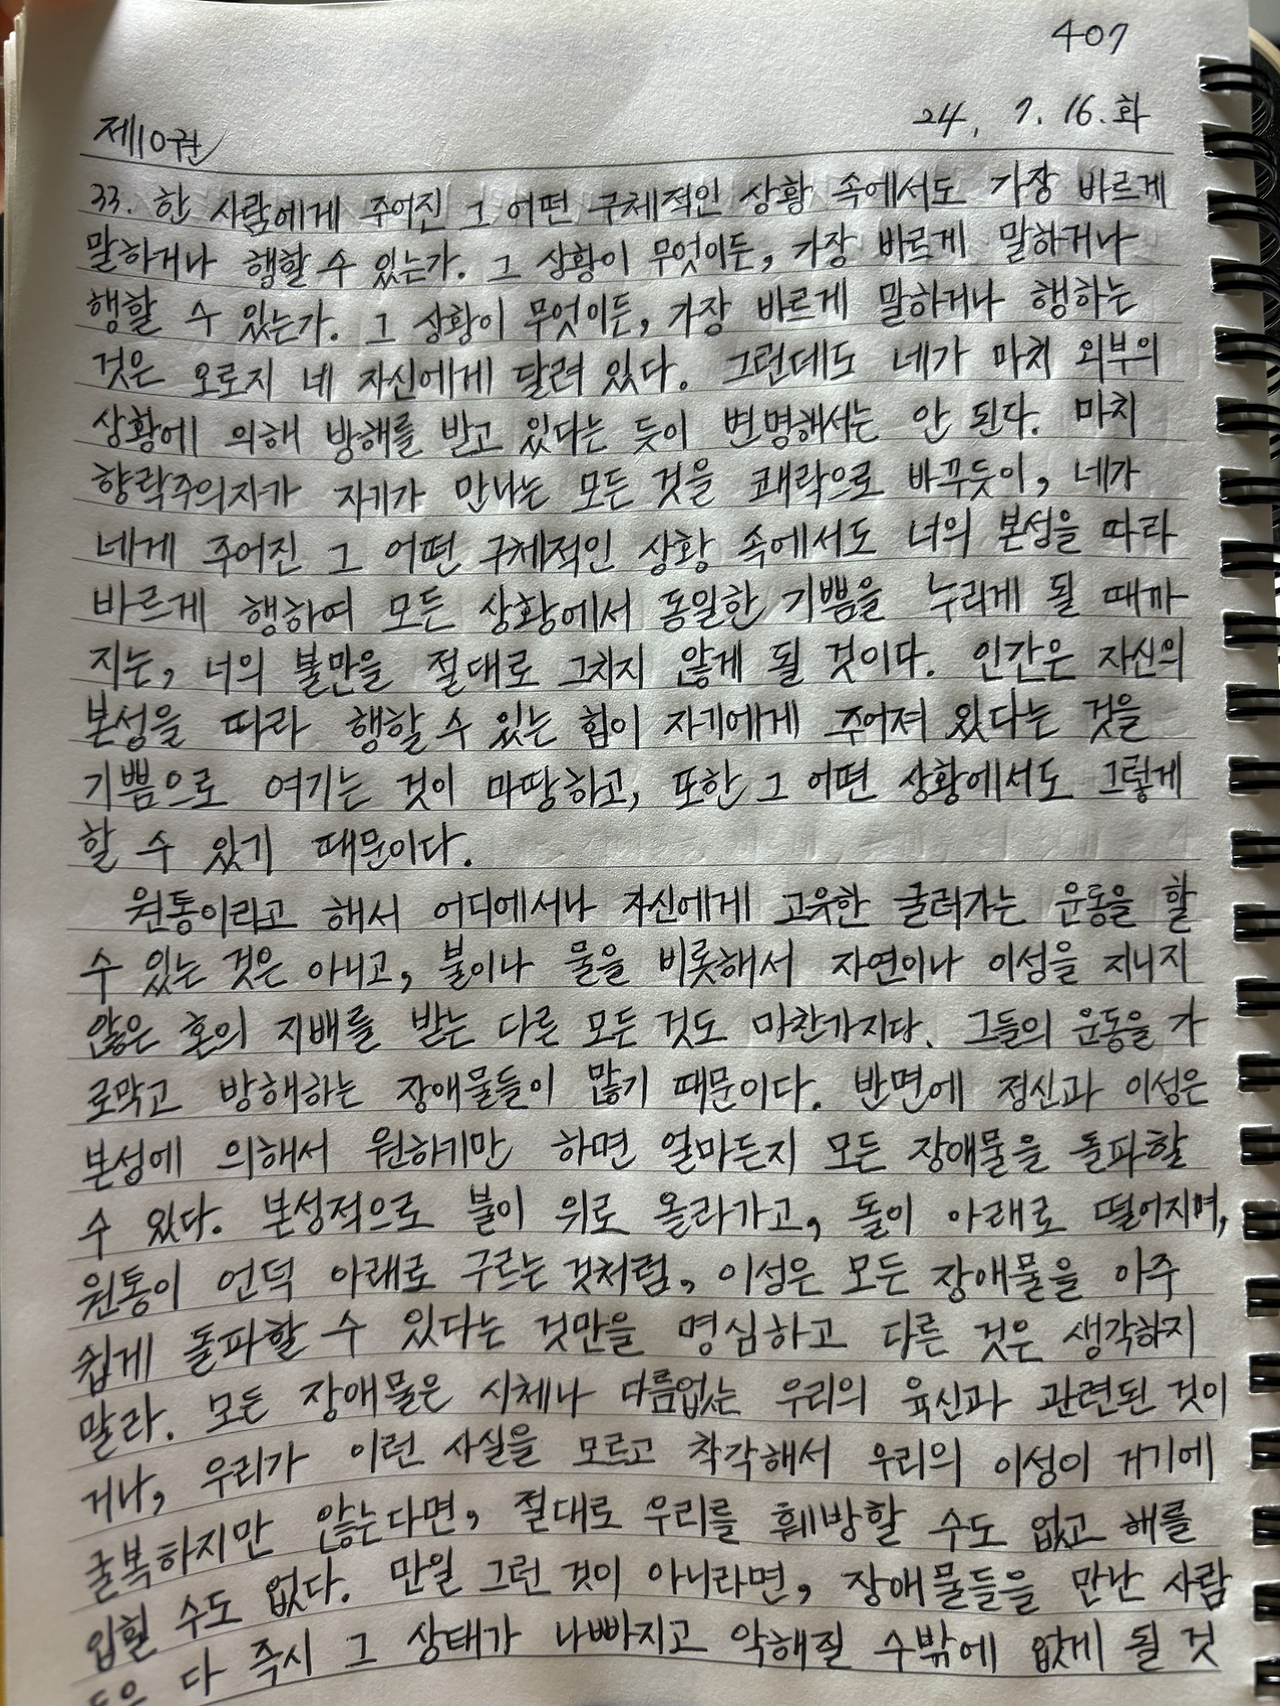 407
24. 7. 16. 화
제10권
33. 한 사람에게 주어진 그 어떤 구체적인 상황 속에서도 가장 바르게
말하거나 행할 수 있는가. 그 상황이 무엇이든, 가장 바르게 말하거나
행할 수 있는가. 그 상황이 무엇이든, 가장 바르게 말하거나 행하는
것은 오로지 네 자신에게 달려 있다. 그런데도 네가 마치 외부의
상황에 의해 방해를 받고 있다는 듯이 변명해서는 안 된다. 마치
향락주의자가 자기가 만나는 모든 것을 쾌락으로 바꾸듯이, 네가
네게 주어진 그 어떤 구체적인 상황 속에서도 너의 본성을 따라
바르게 행하여 모든 상황에서 동일한 기쁨을 누리게 될 때까
지는, 너의 불만을 절대로 그치지 않게 될 것이다. 인간은 자신의
본성을 따라 행할 수 있는 힘이 자기에게 주어져 있다는 것을
기쁨으로 여기는 것이 마땅하고, 또한 그 어떤 상황에서도 그렇게
할 수 있기 때문이다.
원통이라고 해서 어디에서나 자신에게 고유한 굴러가는 운동을 할
수 있는 것은 아니고, 불이나 물을 비롯해서 자연이나 이성을 지니지
않은 혼의 지배를 받는 다른 모든 것도 마찬가지다. 그들의 운동을 가
로막고 방해하는 장애물들이 많기 때문이다. 반면에 정신과 이성은
본성에 의해서 원하기만 하면 얼마든지 모든 장애물을 돌파할
수 있다. 본성적으로 불이 위로 올라가고, 돌이 아래로 떨어지며,
원통이 언덕 아래로 구르는 것처럼, 이성은 모든 장애물을 아주
쉽게 돌파할 수 있다는 것만을 명심하고 다른 것은 생각하지
말라. 모든 장애물은 시체나 다름없는 우리의 육신과 관련된 것이
거나, 우리가 이런 사실을 모르고 착각해서 우리의 이성이 거기에
굴복하지만 않는다면, 절대로 우리를 훼방할 수도 없고 해를
입힐 수도 없다. 만일 그런 것이 아니라면, 장애물들을 만난 사람
들은 다 즉시 그 상태가 나빠지고 악해질 수밖에 없게 될 것